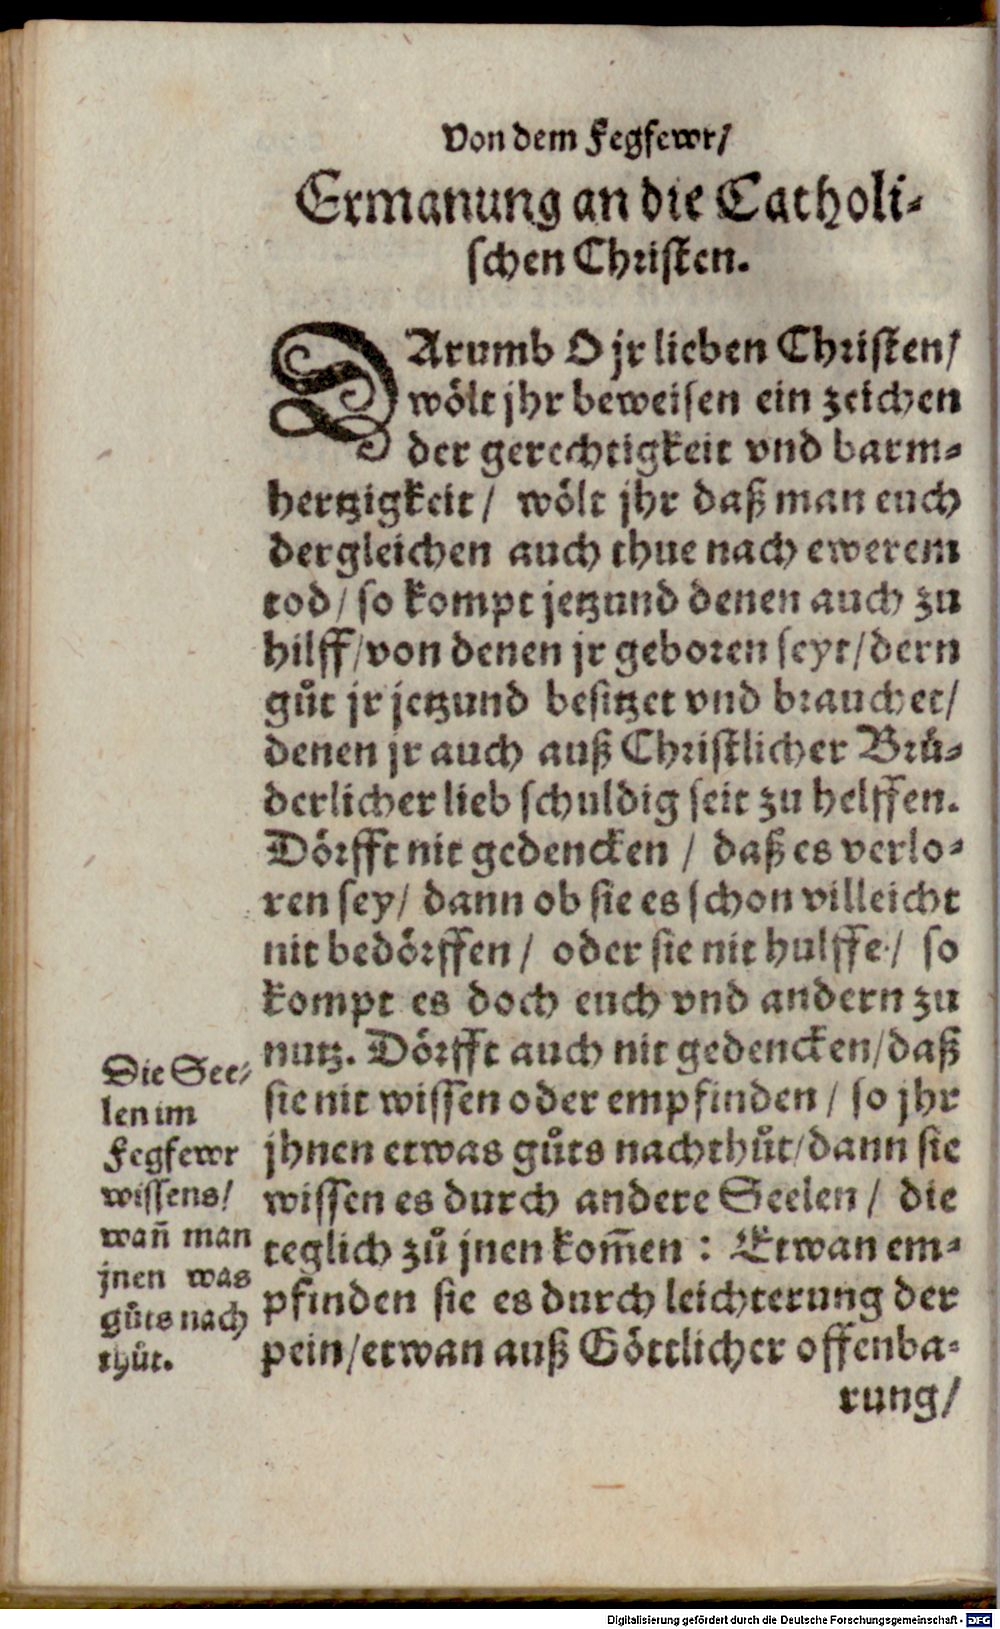 Von dem Fegfewr/
Ermanung an die Catholi-
schen Christen.
DArumb O jr lieben Christen/
wölt jhr beweisen ein zeichen
der gerechtigkeit vnd barm-
hertzigkeit / wölt jhr daß man euch
dergleichen auch thue nach ewerem
tod / so kompt jetzund denen auch zu
hilff / von denen jr geboren seyt / dern
gůt jr jetzund besitzet vnd brauchet /
denen jr auch auß Christlicher Brů-
derlicher lieb schuldig seit zu helffen.
Dörfft nit gedencken / daß es verlo-
ren sey / dann ob sie es schon villeicht
nit bedörffen / oder sie nit hulffe / so
kompt es doch euch vnd andern zu
nutz. Dörfft auch nit gedencken / daß
sie nit wissen oder empfinden / so jhr
jhnen etwas gůts nachthůt / dann sie
wissen es durch andere Seelen / die
teglich zů jnen kom̃en : Etwan em-
pfinden sie es durch leichterung der
pein / etwan auß Göttlicher offenba-
rung /
Die See-
len im
Fegfewr
wissens /
wañ man
jnen was
gůts nach
thůt.
Digitalisierung gefördert durch die Deutsche Forschungsgemeinschaft - DFG